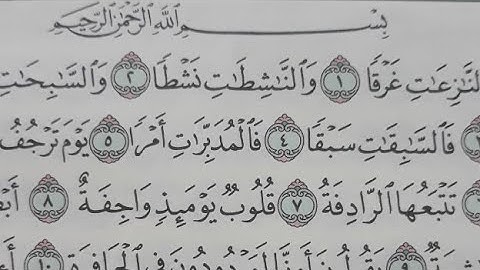 بِسْمِ ٱللَّهِ ٱلرَّحْمَٰنِ ٱلرَّحِيمِ
غَرْقًا ١ وَٱلنَّٰشِطَٰتِ نَشْطًا ٢ وَٱلسَّٰبِحَٰتِ
فَٱلسَّٰبِقَٰتِ سَبْقًا ٤ فَٱلْمُدَبِّرَٰتِ أَمْرًا ٥ يَوْمَ تَرْجُفُ
تَتْبَعُهَا ٱلرَّادِفَةُ ٧ قُلُوبٌ يَوْمَئِذٍ وَاجِفَةٌ ٨